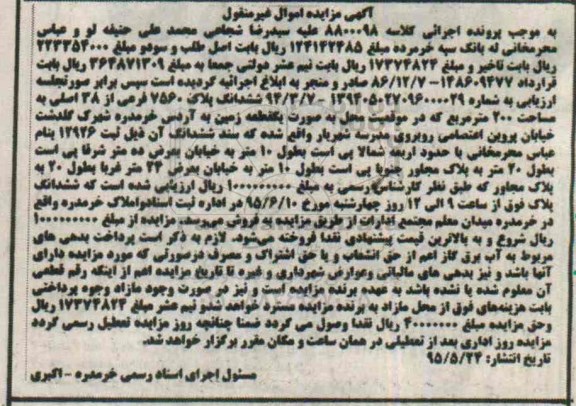 آگهی مزایده اموال غیرمنقول
به موجب پرونده اجرائی کلاسه ۸۸۰۰۰۹۸ علیه سیدرضا شجاعی محمد علی حنیفه لو و عباس
محرمخانی له بانک سپه خرمدره مبلغ ۱۲۴۱۳۲۴۸۵ ریال بابت اصل طلب و سودو مبلغ ۲۲۳۳۵۴۰۰۰
ریال بابت تاخیر و مبلغ ۱۷۳۷۴۸۲۴ ریال بابت نیم عشر دولتی جمعا به مبلغ ۳۶۴۸۷۱۳۰۹ ریال بابت
قرارداد ۱۴۸۶۰۹۴۷۷ – ۸۶/۱۲/۷ صادر و منجر به ابلاغ اجرائیه گردیده است سپس برابر صورتجلسه
ارزیابی به شماره ۱۳۹۴۰۵۰۲۷۰۹۶۰۰۰۰۲۹ – ۹۴/۳/۷ ششدانگ پلاک ۷۵۶۰ فرعی از ۳۸ اصلی به
مساحت ۲۰۰ مترمربع که در موقعیت محل به صورت یکقطعه زمین به آدرس خرمدره شهرک گلدشت
خیابان پروین اعتصامی روبروی مدرسه شهریار واقع شده که سند ششدانگ آن ذیل ثبت ۱۲۹۲۶ بنام
عباس محرمخانی با حدود اربعه شمالا پی است بطول ۱۰ متر به خیابان بعرض ده متر شرقا پی است
بطول ۲۰ متر به پلاک مجاور جنوبا پی است بطول ۱۰ متر به خیابان بعرض ۲۴ متر غربا بطول ۲۰ به
پلاک مجاور که طبق نظر کارشناس رسمی به مبلغ ۱۰۰۰۰۰۰۰۰۰ ریال ارزیابی شده است که ششدانگ
پلاک فوق از ساعت ۹ الی ۱۲ روز چهارشنبه مورخ ۹۵/۶/۱۰ در اداره ثبت اسنادواملاک خرمدره واقع
در خرمدره میدان معلم مجتمع ادارات از طریق مزایده به فروش می‌رسد. مزایده از مبلغ ۱۰۰۰۰۰۰۰۰۰
ریال شروع و به بالاترین قیمت پیشنهادی نقدا فروخته می‌شود. لازم به ذکر است پرداخت بدهی های
مربوط به آب برق گاز اعم از حق انشعاب و یا حق اشتراک و مصرف درصورتی که مورد مزایده دارای
آنها باشد و نیز بدهی های مالیاتی وعوارض شهرداری و غیره تا تاریخ مزایده اعم از اینکه رقم قطعی
آن معلوم شده یا نشده باشد به عهده برنده مزایده است و نیز در صورت وجود مازاد وجوه پرداختی
بابت هزینه‌های فوق از محل مازاد به برنده مزایده مسترد خواهد شدو نیم عشر مبلغ ۱۷۳۷۴۸۲۴ ریال
وحق مزایده مبلغ ۴۰۰۰۰۰۰۰ ریال نقدا وصول می گردد ضمنا چنانچه روز مزایده تعطیل رسمی گردد
مزایده روز اداری بعد از تعطیلی در همان ساعت و مکان مقرر برگزار خواهد شد.
تاریخ انتشار: ۹۵/۵/۲۴
مسئول اجرای اسناد رسمی خرمدره – اکبری